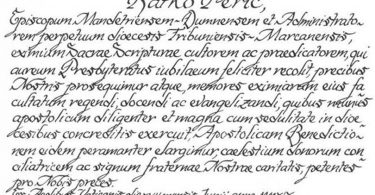 Ratko Perić,
Episcopum Mandetriensem-Dumnensem et Administrato-
rem perpetuum dioecesis Tribuniensis-Marcanensis,
eximium Sacrae Scripturae cultorem ac praedicatorem, qui
aureum Presbyteratus iubilaeum feliciter recolit, precibus
Nostris prosequimur atque, memores eximiarum eius fa-
cultatum regendi, docendi ac evangelizandi, quibus munus
apostolicum diligenter et magna cum sedulitate in dioe-
cesibus concreditis exercuit, Apostolicam Benedictio-
nem eidem peramanter elargimur, caelestium donorum con-
ciliatricem ac signum fraternae Nostrae caritatis, petentes
pro Nobis preces.